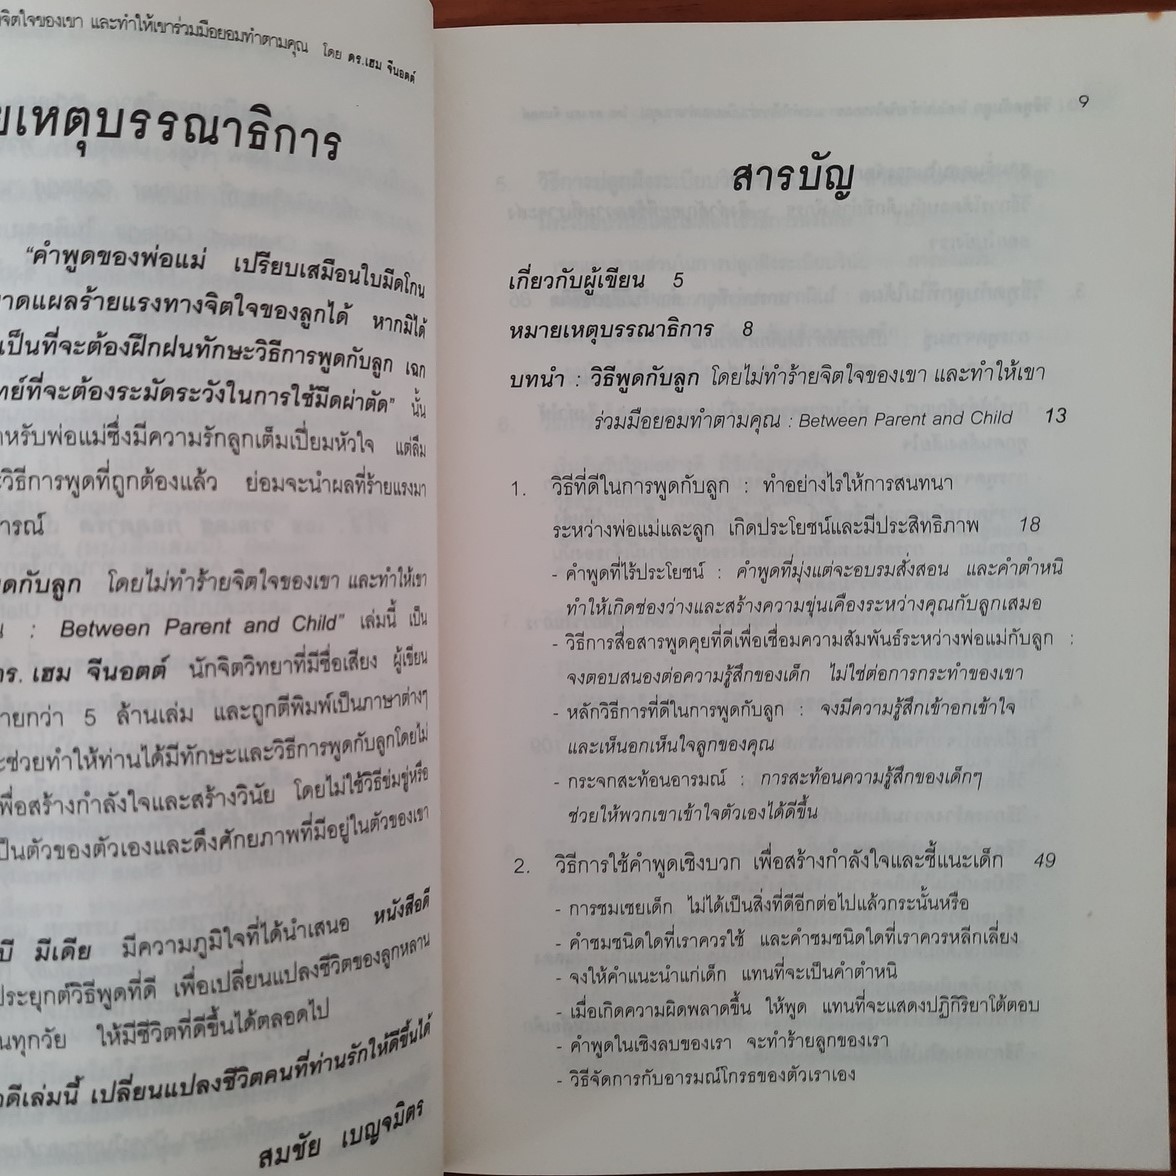 จิตใจของเขา และทำให้เขาร่วมมือยอมทำตามคุณ โดย ดร.เฮม จีนอตต์
ยเหตุบรรณาธิการ
“คำพูดของพ่อแม่ เปรียบเสมือนใบมีดโกน
าดแผลร้ายแรงทางจิตใจของลูกได้ หากมิได้
เป็นที่จะต้องฝึกฝนทักษะวิธีการพูดกับลูก เฉก
ทย์ที่จะต้องระมัดระวังในการใช้มีดผ่าตัด” นั้น
ำหรับพ่อแม่ซึ่งมีความรักลูกเต็มเปี่ยมหัวใจ แต่ลืม
ะวิธีการพูดที่ถูกต้องแล้ว ย่อมจะนำผลที่ร้ายแรงมา
ารณ์
ูดกับลูก โดยไม่ทำร้ายจิตใจของเขา และทำให้เขา
น : Between Parent and Child” เล่มนี้ เป็น
ดร. เฮม จีนอตต์ นักจิตวิทยาที่มีชื่อเสียง ผู้เขียน
ายกว่า 5 ล้านเล่ม และถูกตีพิมพ์เป็นภาษาต่างๆ
ะช่วยทำให้ท่านได้มีทักษะและวิธีการพูดกับลูกโดยไม่
พื่อสร้างกำลังใจและสร้างวินัย โดยไม่ใช้วิธีข่มขู่หรือ
ป็นตัวของตัวเองและดึงศักยภาพที่มีอยู่ในตัวของเขา
บี มีเดีย มีความภูมิใจที่ได้นำเสนอ หนังสือดี
ประยุกต์วิธีพูดที่ดี เพื่อเปลี่ยนแปลงชีวิตของลูกหลาน
นทุกวัย ให้มีชีวิตที่ดีขึ้นได้ตลอดไป
อดีเล่มนี้ เปลี่ยนแปลงชีวิตคนที่ท่านรักให้ดีขึ้นได้
สมชัย เบญจมิตร
9
สารบัญ
เกี่ยวกับผู้เขียน 5
หมายเหตุบรรณาธิการ 8
บทนำ : วิธีพูดกับลูก โดยไม่ทำร้ายจิตใจของเขา และทำให้เขา
ร่วมมือยอมทำตามคุณ : Between Parent and Child 13
1. วิธีที่ดีในการพูดกับลูก : ทำอย่างไรให้การสนทนา
ระหว่างพ่อแม่และลูก เกิดประโยชน์และมีประสิทธิภาพ 18
- คำพูดที่ไร้ประโยชน์ : คำพูดที่มุ่งแต่จะอบรมสั่งสอน และคำตำหนิ
ทำให้เกิดช่องว่างและสร้างความขุ่นเคืองระหว่างคุณกับลูกเสมอ
- วิธีการสื่อสารพูดคุยที่ดีเพื่อเชื่อมความสัมพันธ์ระหว่างพ่อแม่กับลูก :
จงตอบสนองต่อความรู้สึกของเด็ก ไม่ใช่ต่อการกระทำของเขา
- หลักวิธีการที่ดีในการพูดกับลูก : จงมีความรู้สึกเข้าอกเข้าใจ
และเห็นอกเห็นใจลูกของคุณ
- กระจกสะท้อนอารมณ์ : การสะท้อนความรู้สึกของเด็กๆ
ช่วยให้พวกเขาเข้าใจตัวเองได้ดีขึ้น
2. วิธีการใช้คำพูดเชิงบวก เพื่อสร้างกำลังใจและชี้แนะเด็ก 49
- การชมเชยเด็ก ไม่ได้เป็นสิ่งที่ดีอีกต่อไปแล้วกระนั้นหรือ
- คำชมชนิดใดที่เราควรใช้ และคำชมชนิดใดที่เราควรหลีกเลี่ยง
- จงให้คำแนะนำแก่เด็ก แทนที่จะเป็นคำตำหนิ
- เมื่อเกิดความผิดพลาดขึ้น ให้พูด แทนที่จะแสดงปฏิกิริยาโต้ตอบ
- คำพูดในเชิงลบของเรา จะทำร้ายลูกของเรา
- วิธีจัดการกับอารมณ์โกรธของตัวเราเอง